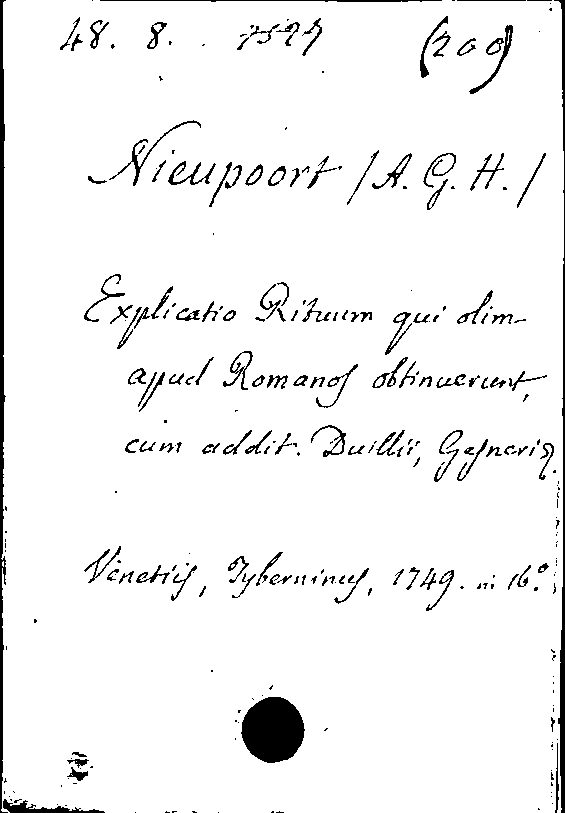 48. 8. 7527 (200)
Nieupoort /A. G. H./
Explicatio Rituum qui olim
apud Romanos obtinuerunt,
cum addit. Duillii, Gesneri
Venetiis, Tyberninus, 1749. in 16.º